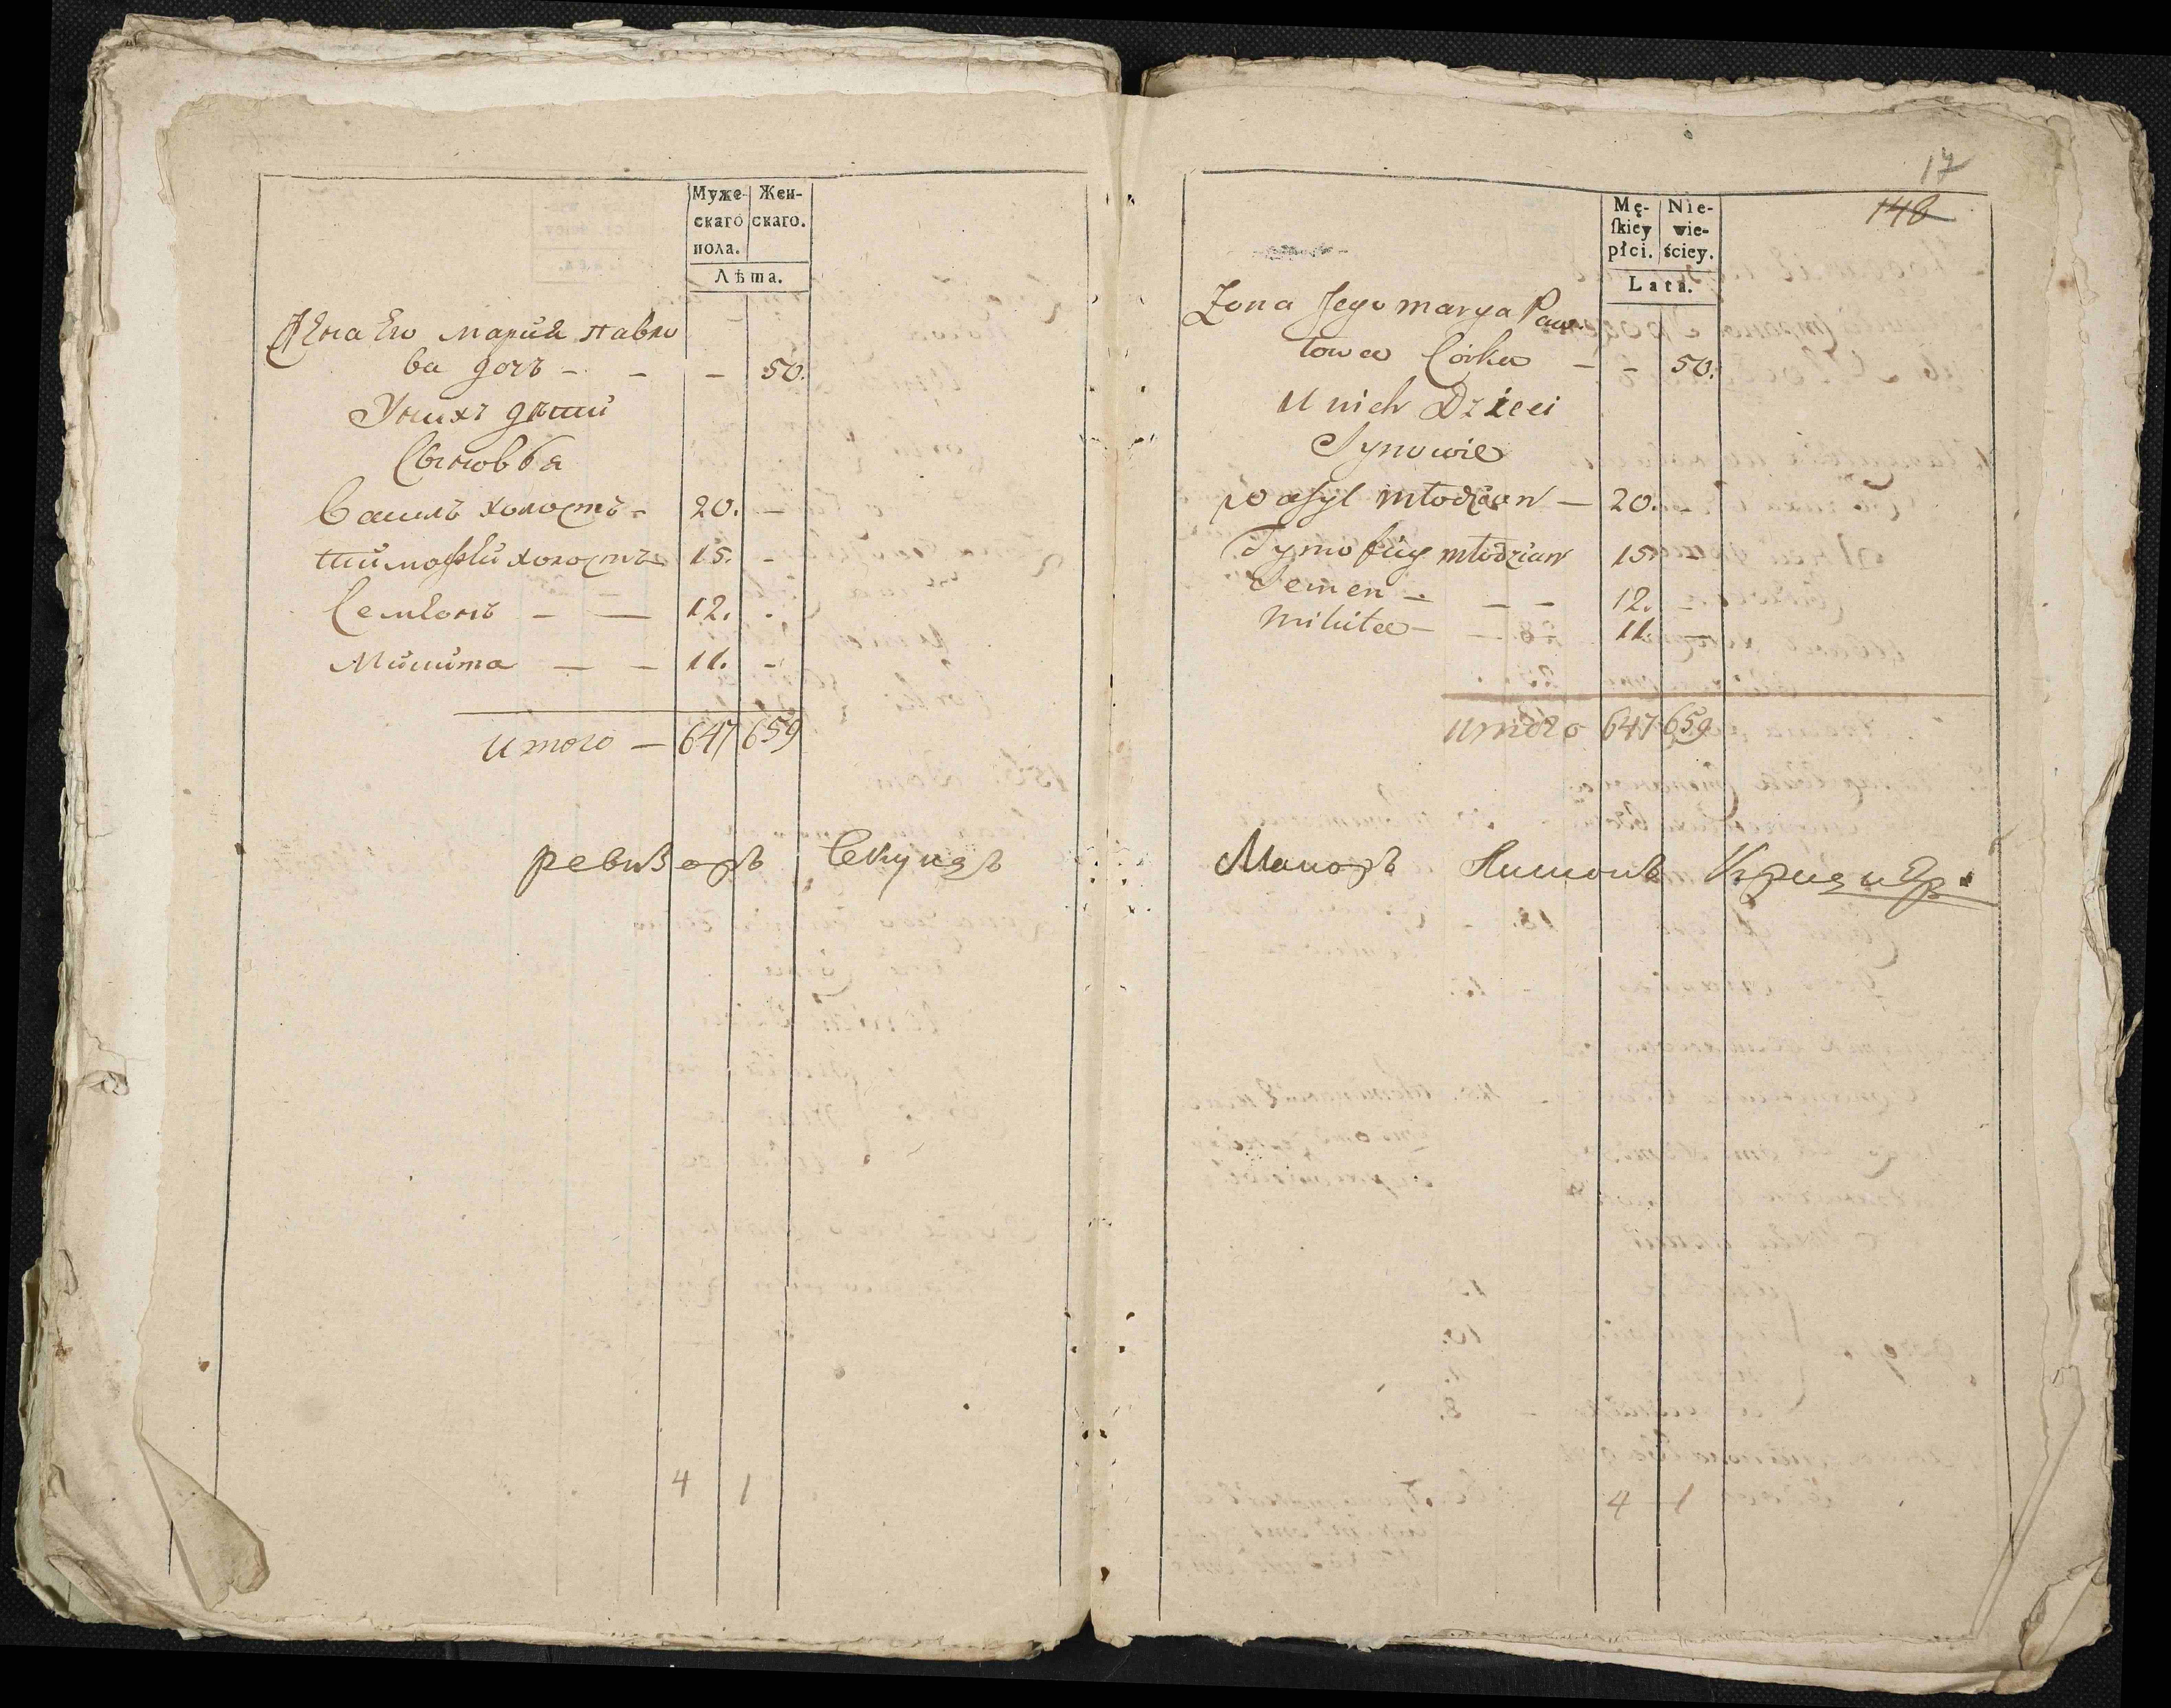 Муже-
скаго
пола.
Жен-
скаго.
Лѣта.
Жена Его Мария павло
ва дочь - - - 50.
Унихъ дѣти
Сыновья
Василь холостъ - 20. -
тимофѣй холостъ 15. -
Семѣонъ - - 12. -
Микита - - 11. -
итого - 647 659
ревизоръ Секундъ
4 1
17
148
Mę-
ſkiey
płci.
Nie-
wie-
ściey.
Lata.
Zona Jego marya Paw
łowa Corka - - 50.
U nich Dzieci
Synowie
wasyl młodzian - 20. -
Tymofiey młodzian 15. -
Semen - - - 12. -
Mikita - - 11. -
итого 647 659
Маиоръ
4 1